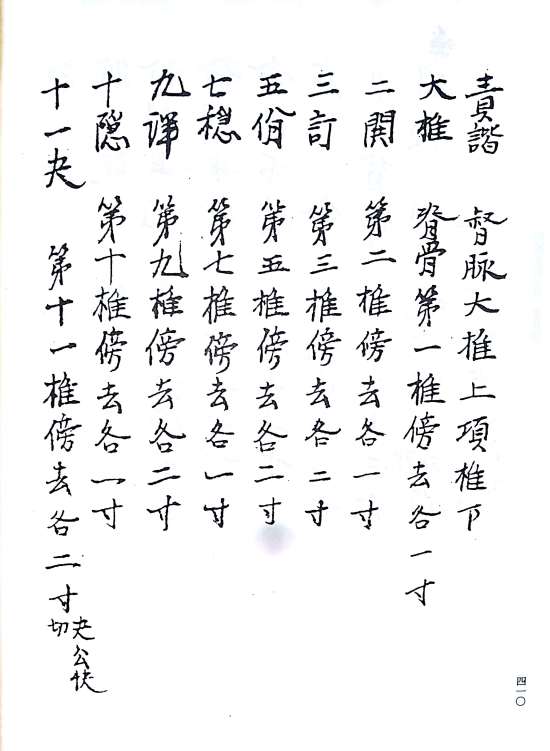 責譜 督脉大椎上項椎下
大椎 脊骨第一椎傍去各一寸
二関 第二椎傍去各一寸
三訂 第三椎傍去各二寸
五佾 第五椎傍去各二寸
七穏 第七椎傍去各一寸
九渾 第九椎傍去各二寸
十隠 第十椎傍去各一寸
十一夬 第十一椎傍去各二寸 夬公快切
四一〇